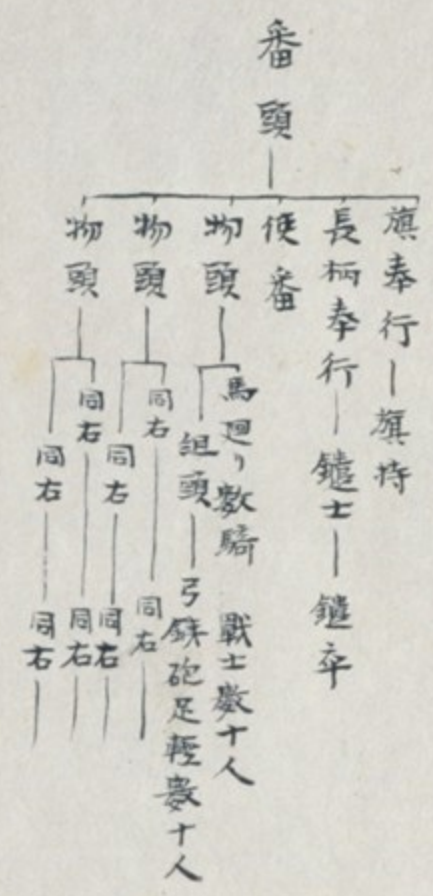 番頭
旗奉行
旗持
長柄奉行
鑓士
鑓卒
使番
物頭
馬廻り數騎
戰士數十人
組頭
弓鉄砲足輕數十人
物頭
同右
同右
同右
同右
物頭
同右
同右
同右
同右